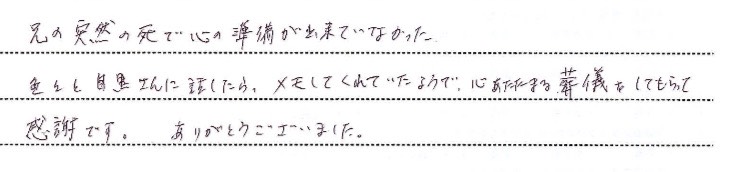 兄の突然の死で心の準備が出来ていなかった
色々と さんに話したら、メモしてくれていたようで、心あたたまる葬儀をしてもらって
感謝です。 ありがとうございました。